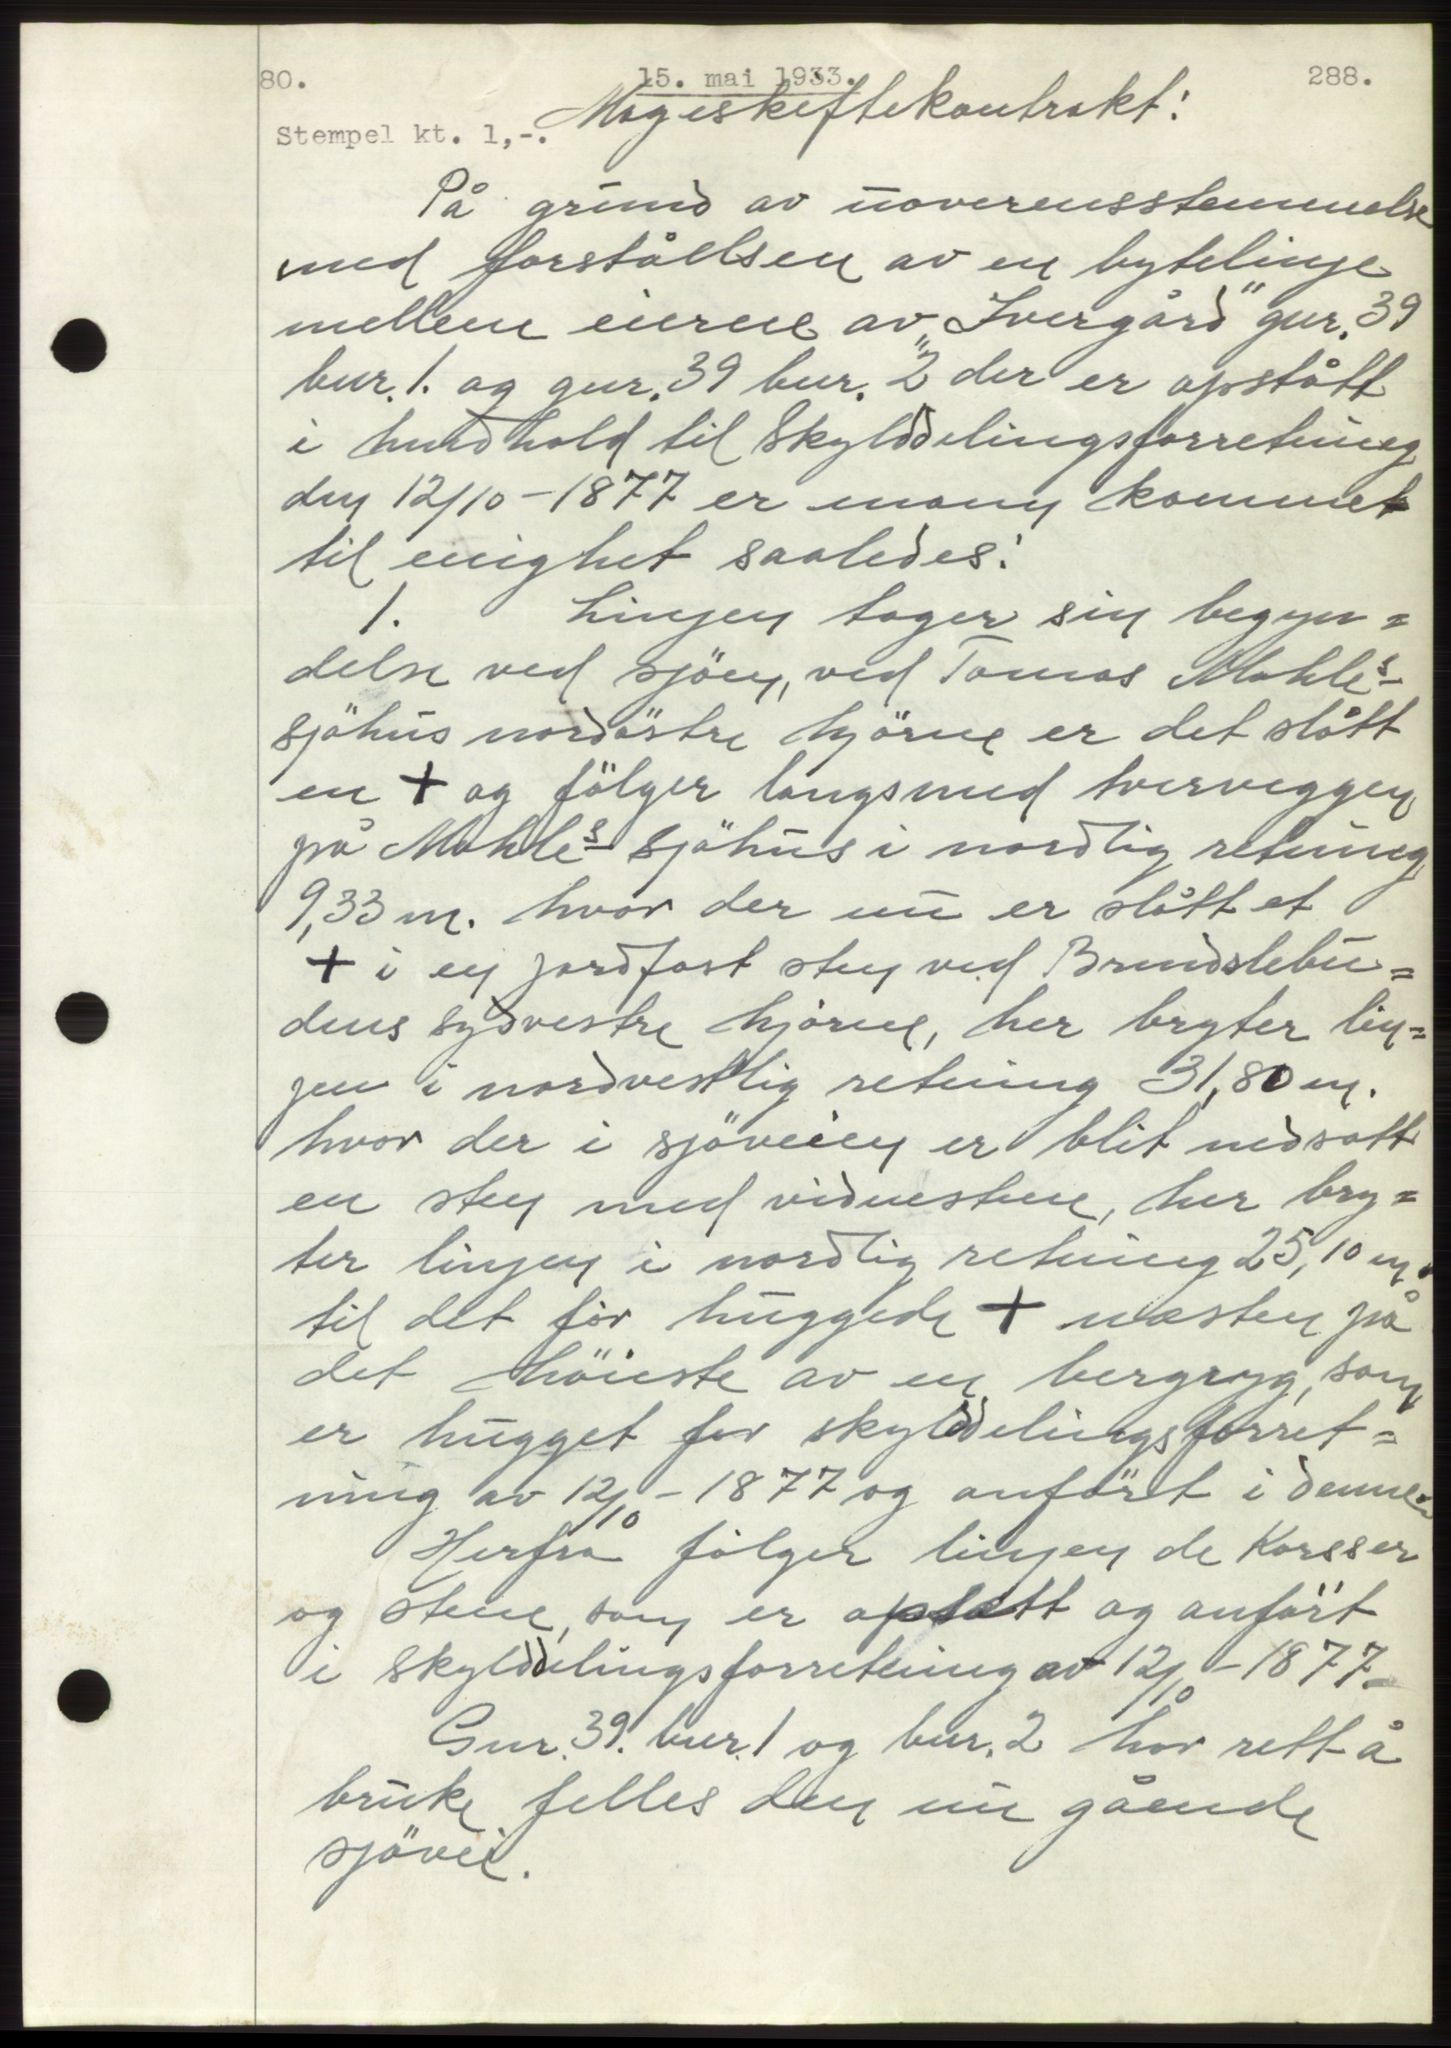 80. 15. mai 1933. 288.
Stempel kt. 1,-. Mageskeftekontrakt:
På grund av uoverensstemmelse
med forståelsen av en bytelinje
mellem eierne av "Ivergård" gnr. 39
bnr. 1. og gnr. 39 bnr. 2" der er opstått
i henhold til Skylddelingsforretning
den 12/10-1877 er man kommet
til enighet saaledes:
1. Linjen tager sin begyn=
delse ved sjöen, ved Tomas Mahle's
sjöhus nordöstre hjörne er det slått
en + og fölger langsmed tverveggen
på Mahle's sjöhus i nordlig retning
9,33 m. hvor der nu er slått et
+ i en jordfast sten ved Brudslebu=
dens sydvestre hjörne, her bryter lin=
jen i nordvestlig retning 31,80 m.
hvor der i sjöveien er blit nedsatt
en sten med vidnestene, her bry=
ter linjen i nordlig retning 25,10 m.
til det för huggede + næsten på
det höieste av en bergryg, som
er hugget for skylddelingsforret=
ning av 12/10-1877 og anfört i denne.
Herfra fölger linjen de Korsser
og stene, som er opsatt og anfört
i Skylddelingsforretning av 12/10-1877.
Gnr. 39. bnr. 1 og bnr. 2 har rett å
bruke felles den nu gående
sjövei.